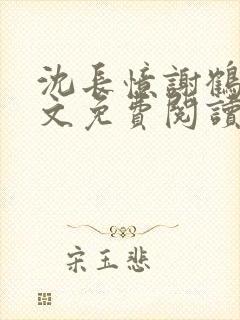 沈長憶謝鶴
文免費閱讀
宋玉悲